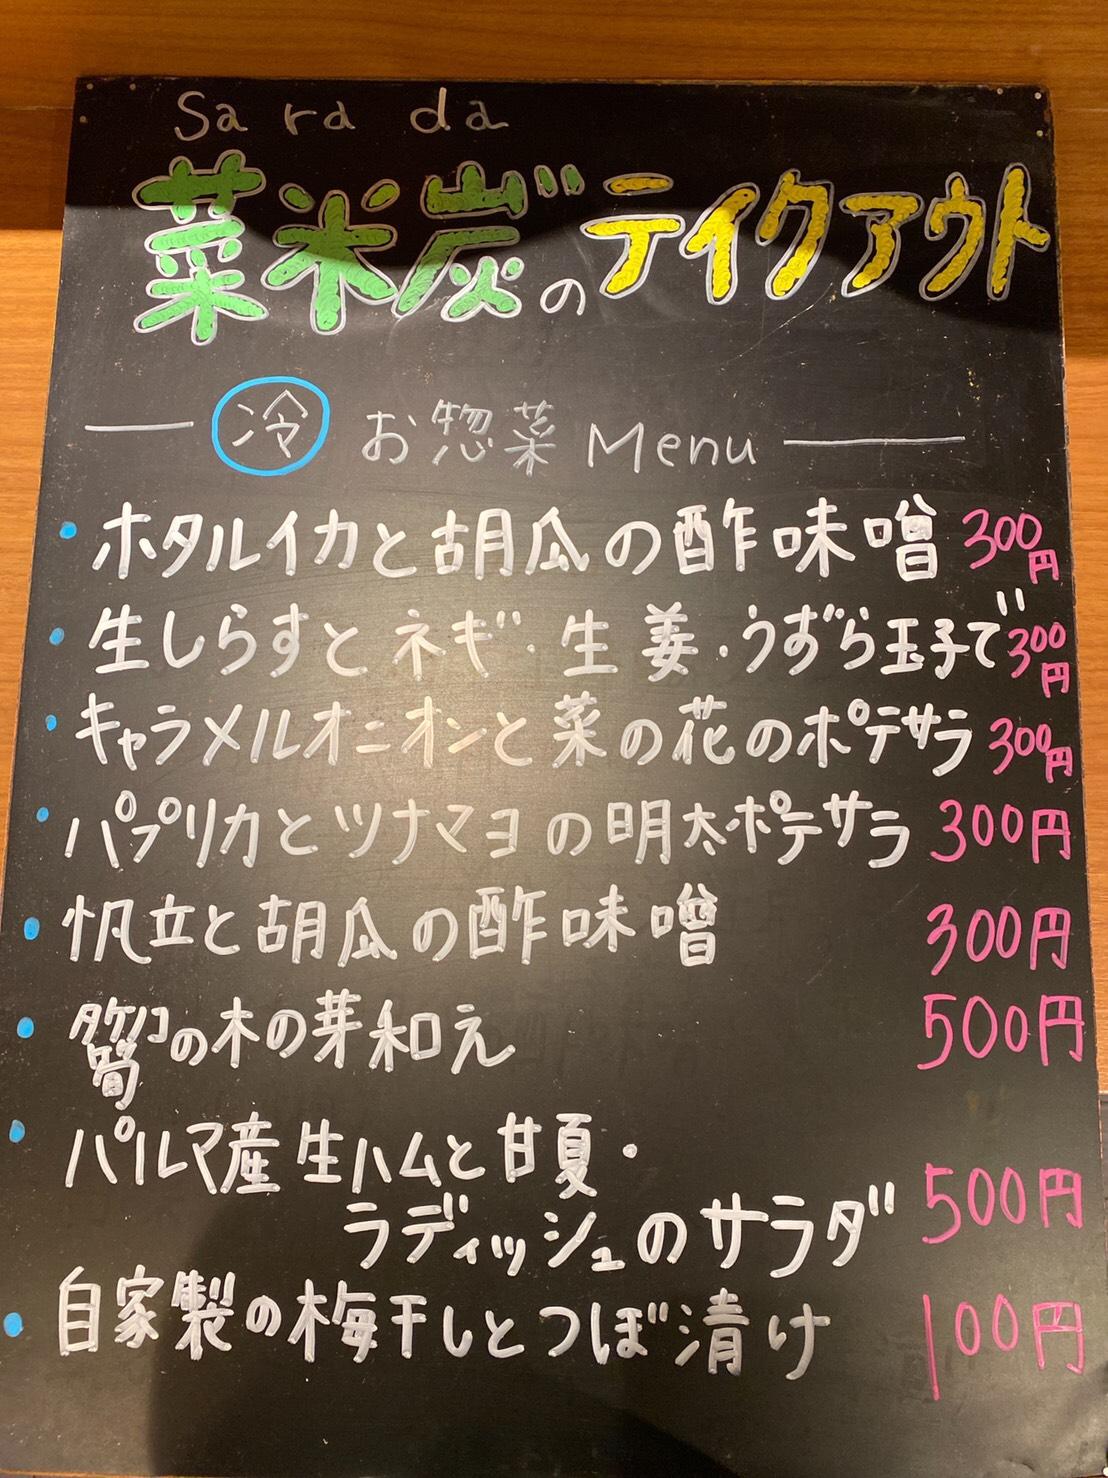 Sa ra da
菜米炭゛のテイクアウト
冷 お惣菜 Menu
・ホタルイカと胡瓜の酢味噌 300円
・生しらすとネギ・生姜・うずら玉子で 300円
・キャラメルオニオンと菜の花のポテサラ 300円
・パプリカとツナマヨの明太ポテサラ 300円
・帆立と胡瓜の酢味噌 300円
・筍の木の芽和え 500円
タケノコ
・パルマ産生ハムと甘夏・
ラディッシュのサラダ 500円
・自家製の梅干しとつぼ漬け 100円